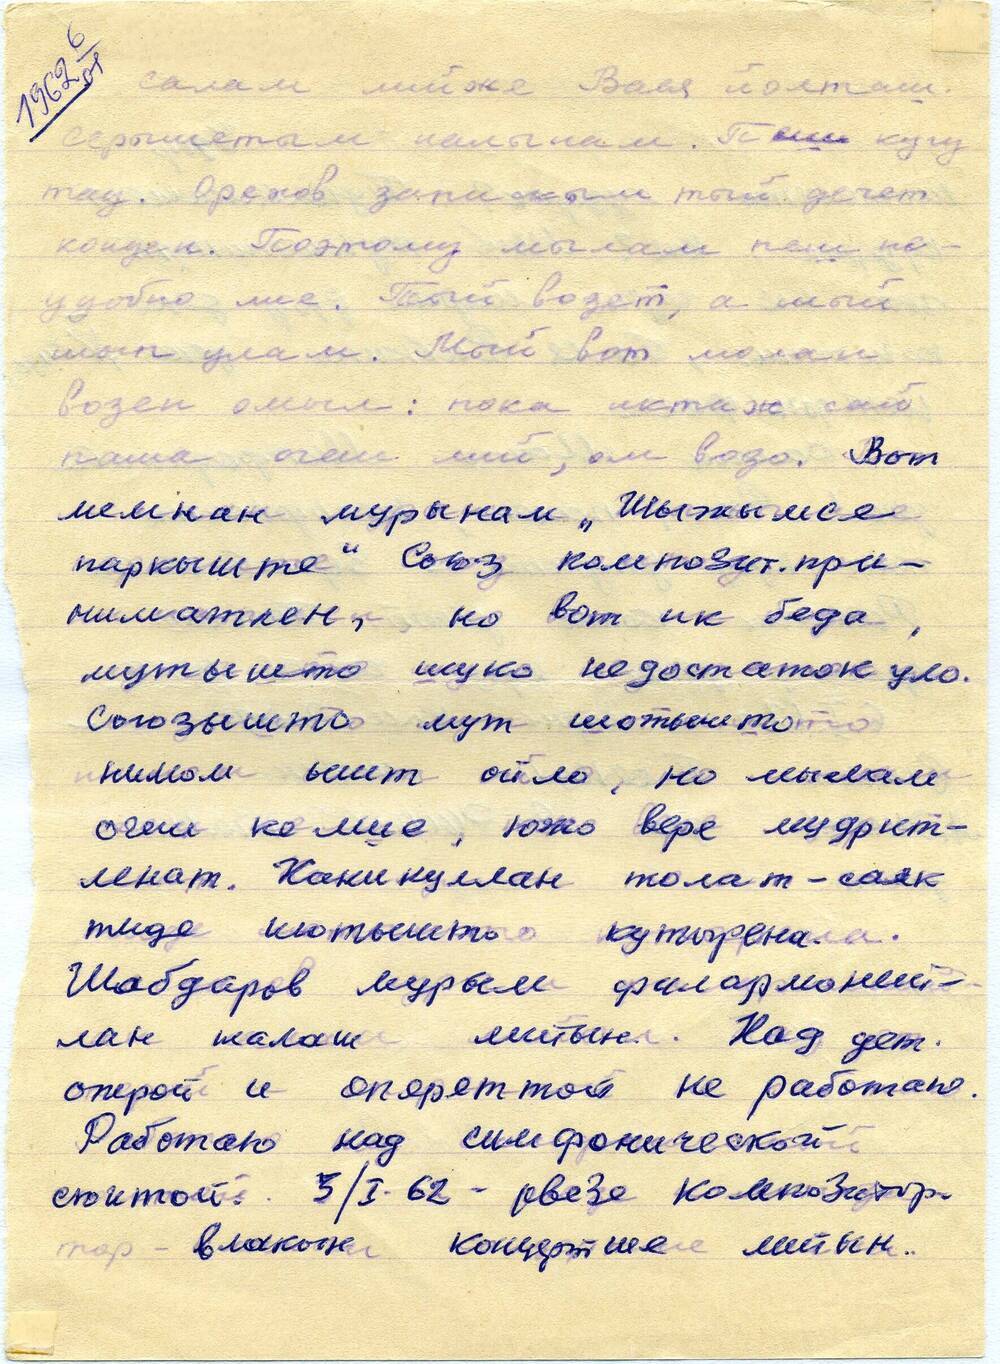 1962 6/01
салам лийже Вася йолташ.
серышетым нальнам. Пеш кугу
тау. Орехов запискым тый дечет
конден. Поэтому мылам пеш не-
удобно лие. Тый возет, а мый
шып улам. Мый вот молан
возен омыл: пока иктаж сай
паша огеш лий, ом возо. Вот
мемнан мурынам „Шыжымсе
паркыште“ Союз композит. при-
ниматлен, но вот ик беда,
мутышто шуко недостаток уло.
Союзышто мут шотышто
нимом ышт ойло, но мылам
огеш келше, южо вере мудрит-
ленат. Каникуллан толат-саяк
тиде шотышто кутырена.
Шабдаров мурым филармоний-
лан налаш лийын. Над дет.
оперой и опереттой не работаю.
Работаю над симфонической
сюитой. 5/I-62 - рвезе композитор-
влакын концертше лийын.